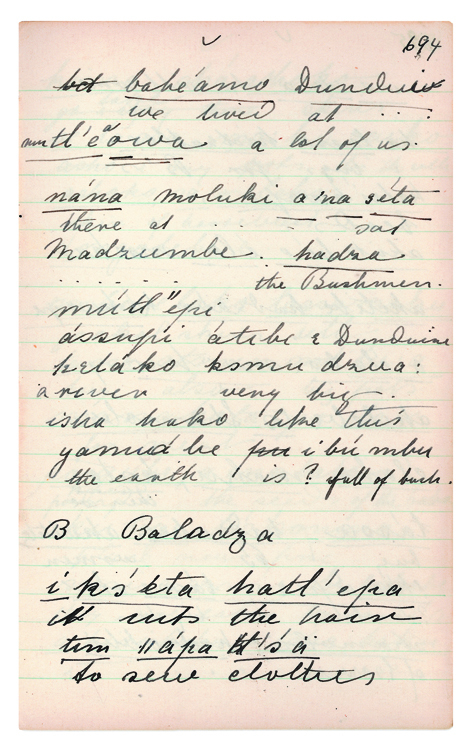 694
babé'amo Dunduiw
we lived at ...
tl'éówa a lot of us.
nána moluki a'na séta
there at ... sat
Madzumbe. hadza
the Bushmen.
mútl"épi
ássupi átibe & Dunduine
keláko ksmudzua:
a river very big.
isha hako like this
yamua be i bú mbu
the earth is ? full of bush.
B Baladza
i ks'éta hatl'epa
it the
tim ııápa tl's'ä
to sew clothes